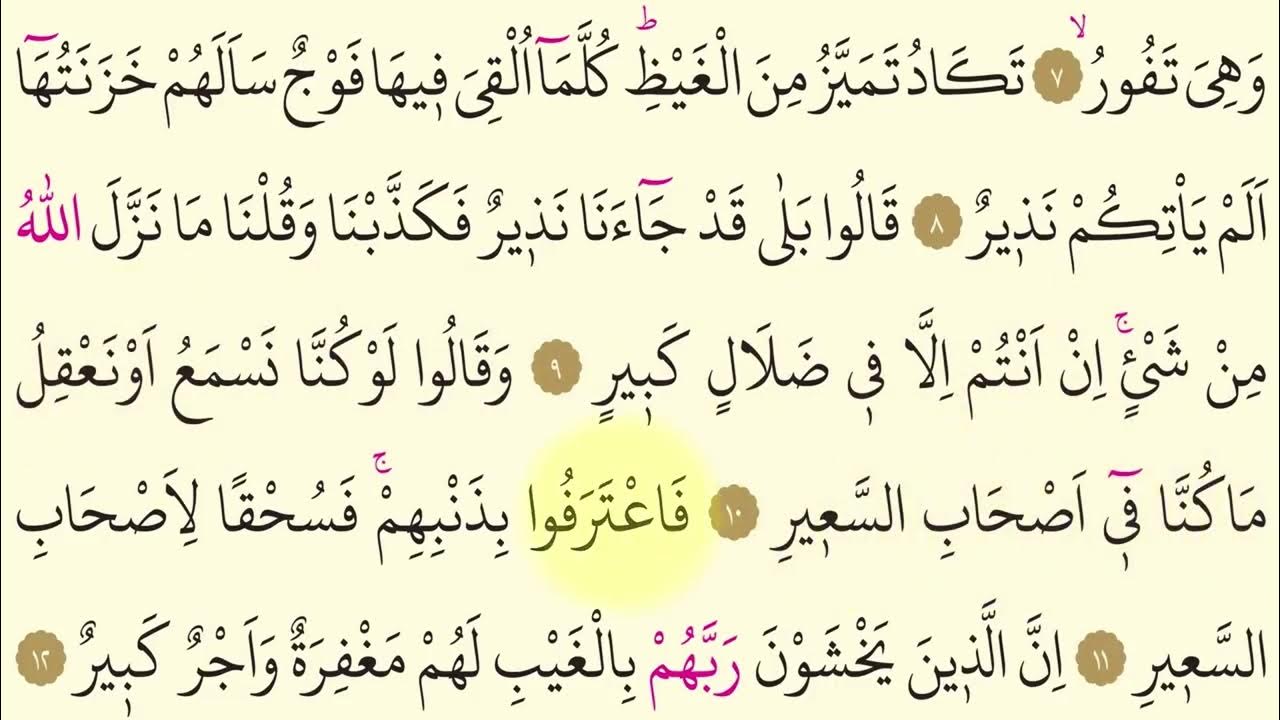 وَهِيَ تَفُورُۙ ﴿٧﴾ تَكَادُ تَمَيَّزُ مِنَ الْغَيْظِۜ كُلَّمَٓا اُلْقِيَ ف۪يهَا فَوْجٌ سَاَلَهُمْ خَزَنَتُهَٓا
اَلَمْ يَأْتِكُمْ نَذ۪يرٌ ﴿٨﴾ قَالُوا بَلٰى قَدْ جَٓاءَنَا نَذ۪يرٌ فَكَذَّبْنَا وَقُلْنَا مَا نَزَّلَ اللّٰهُ
مِنْ شَيْءٍۚ اِنْ اَنْتُمْ اِلَّا ف۪ي ضَلَالٍ كَب۪يرٍ ﴿٩﴾ وَقَالُوا لَوْ كُنَّا نَسْمَعُ اَوْ نَعْقِلُ
مَا كُنَّا ف۪ٓي اَصْحَابِ السَّع۪يرِ ﴿١٠﴾ فَاعْتَرَفُوا بِذَنْبِهِمْۚ فَسُحْقًا لِاَصْحَابِ
السَّع۪يرِ ﴿١١﴾ اِنَّ الَّذ۪ينَ يَخْشَوْنَ رَبَّهُمْ بِالْغَيْبِ لَهُمْ مَغْفِرَةٌ وَاَجْرٌ كَب۪يرٌ ﴿١٢﴾